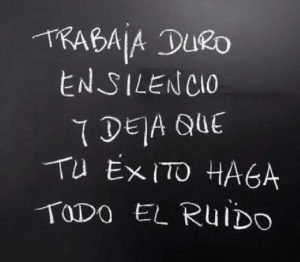 TRABAJA DURO
EN SILENCIO
Y DEJA QUE
TU ÉXITO HAGA
TODO EL RUÏDO